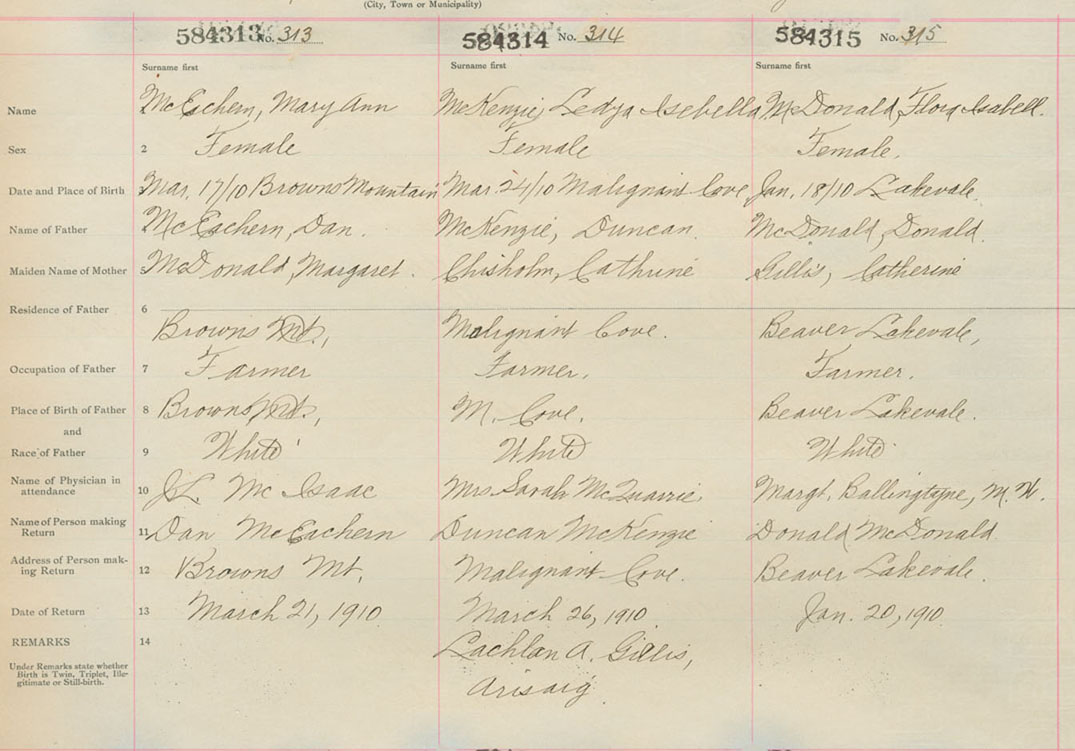 (City, Town or Municipality)
584313 No. 313 584314 No. 314 584315 No. 315
Surname first Surname first Surname first
Name 1 McEachern, Mary Ann McKenzie, Ledya Isebella McDonald, Flora Isabell.
Sex 2 Female Female Female.
Date and Place of Birth Mar. 17/10 Browns Mountain Mar. 24/10 Malignant Cove Jan. 18/10 Lakevale.
Name of Father 4 McEachern, Dan. McKenzie, Duncan. McDonald, Donald.
Maiden Name of Mother 5 McDonald, Margaret. Chisholm, Cathrine Gillis, Catherine
Residence of Father 6
Browns Mt., Malignant Cove. Beaver Lakevale,
Occupation of Father 7 Farmer Farmer. Farmer.
Place of Birth of Father 8 Browns Mt., M. Cove. Beaver Lakevale.
and
Race of Father 9 White White White
Name of Physician in
attendance 10 J.L. McIsaac Mrs. Sarah McQuarrie Margt. Ballingtyne, M.W.
Name of Person making
Return 11 Dan McEachern Duncan McKenzie Donald McDonald.
Address of Person mak-
ing Return 12 Browns Mt. Malignant Cove. Beaver Lakevale.
Date of Return 13 March 21, 1910 March 26, 1910 Jan. 20, 1910.
REMARKS 14 Lachlan A. Gillis,
Under Remarks state whether
Birth is Twin, Triplet, Ille-
gitimate or Still-birth.
Arisaig